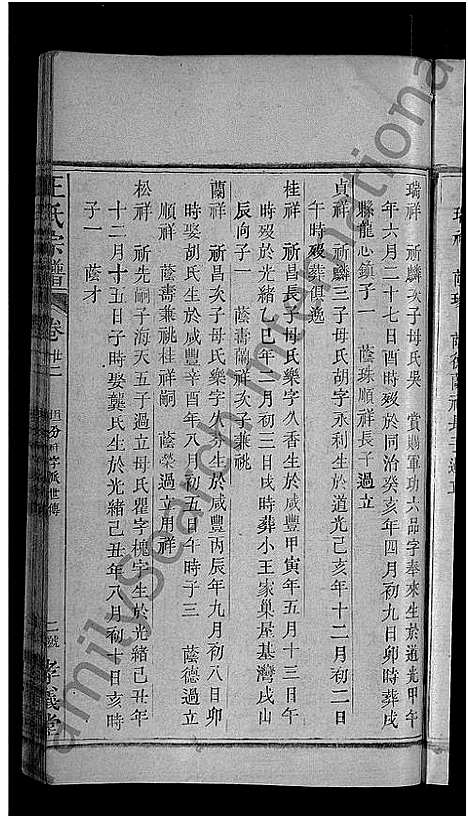 瑞祥 祈麟次子母氏吳 賞戴軍功六品字奉來生於道光甲午
年六月二十七酉時歿於同治癸亥年四月初九日卯時葬戌
縣龍心鎮子一 蔭珠順祥長子過立
貞祥 祈麟三子母氏胡字永利生於道光己亥年十二月初二日
午時歿葬俱逸
桂祥 祈昌長子母氏樂字久香生於咸豐甲寅年五月十三日午
時歿於光緒乙巳年二月初三日戌時葬小王家巢屋基灣戌山
辰向子一 蔭壽蘭祥次子兼祧
蘭祥 祈昌次子母氏樂字久芬生於咸豐丙辰年九月初八日卯
時娶胡氏生於咸豐辛酉年八月初五日午時子三 蔭德過立
順祥 蔭壽兼祧桂祥嗣 蔭榮過立用祥
松祥 祈先嗣子海天五子過立母氏瞿字槐字生於光緒己丑年
十二月十五日子時娶龔氏生於光緒己丑年八月初十日亥時
子一 蔭才
氏宗譜 卷廿二
二號 孝義堂
FamilySearch International